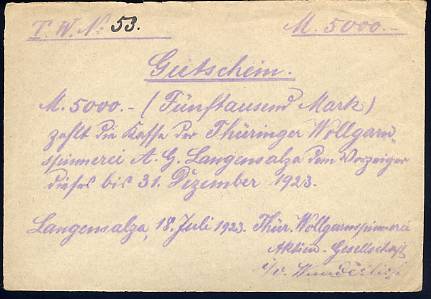 T. W. No: 53. M. 5000.-
Gutschein.
M. 5000.- (Fünftausend Mark)
zahlt die Kasse der Thüringer Wollgarn-
spinnerei A. G. Langensalza dem Vorzeiger
dieses bis 31. Dezember 1923.
Langensalza, 18. Juli 1923. Thür. Wollgarnspinnerei
Aktien-Gesellschaft
i/v.